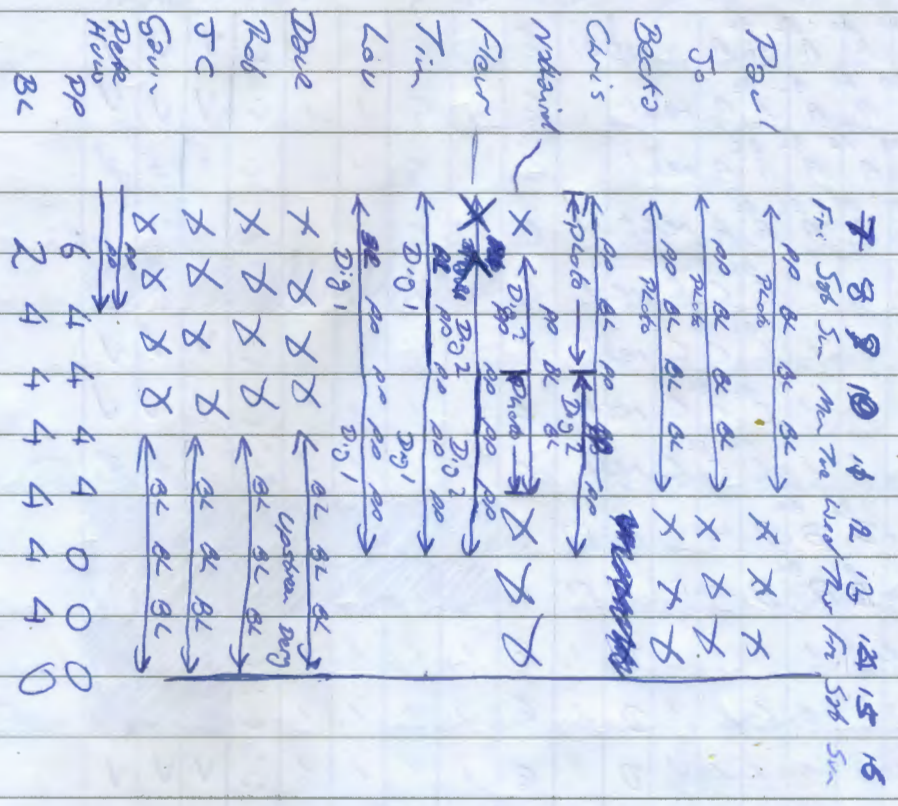 7 8 9 10 11 12 13 14 15 16
Fri Sat Sun Mon Tue Wed Thur Fri Sat Sun
Paul PP BL BL BL X X X
Photo
Jo PP BL BL BL X X X
Photo
Becka PP BL BL BL X X X
Photo
Chris PP BL PP PP PP
Photo Dig 2
X PP BL BL X X X
Dig 2 Photo
Fleur X X PP PP PP PP
Dig 2 Dig 2
Tim BL PP PP PP PP
Dig 1 Dig 1
Lou BL PP PP PP PP
Dig 1 Dig 1
Dave X X X X BL BL BL
Upstream Dig
Rob X X X X BL BL BL
JC X X X X BL BL BL
Gavin X X X X BL BL BL
Pete PP
Huw PP
PP 6 4 4 4 4 0 0 0
BL 2 4 4 4 4 4 4 0